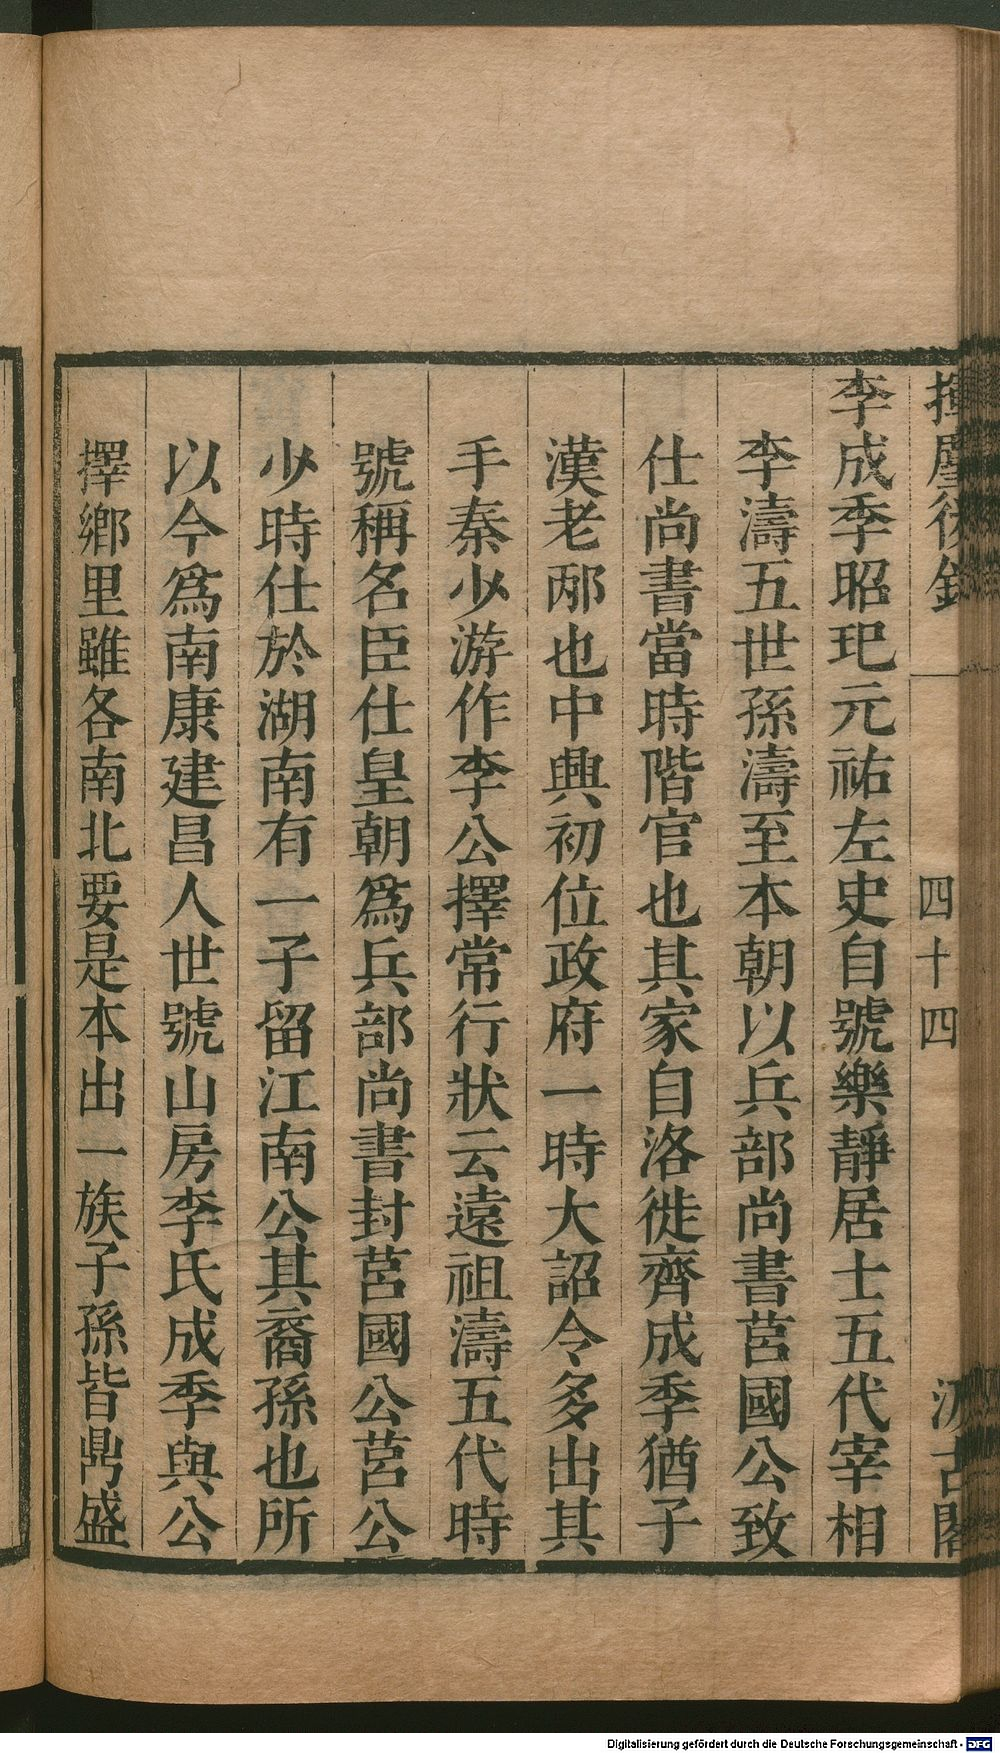 揮麈後錄
四十四
汲古閣
李成季昭玘元祐左史自號樂靜居士五代宰相
李濤五世孫濤至本朝以兵部尚書莒國公致
仕尚書當時階官也其家自洛徙齊成季猶子
漢老邴也中興初位政府一時大詔令多出其
手秦少游作李公擇常行狀云遠祖濤五代時
號稱名臣仕皇朝爲兵部尚書封莒國公莒公
少時仕於湖南有一子留江南公其裔孫也所
以今爲南康建昌人世號山房李氏成季與公
擇鄉里雖各南北要是本出一族子孫皆鼎盛
Digitalisierung gefördert durch die Deutsche Forschungsgemeinschaft - DFG